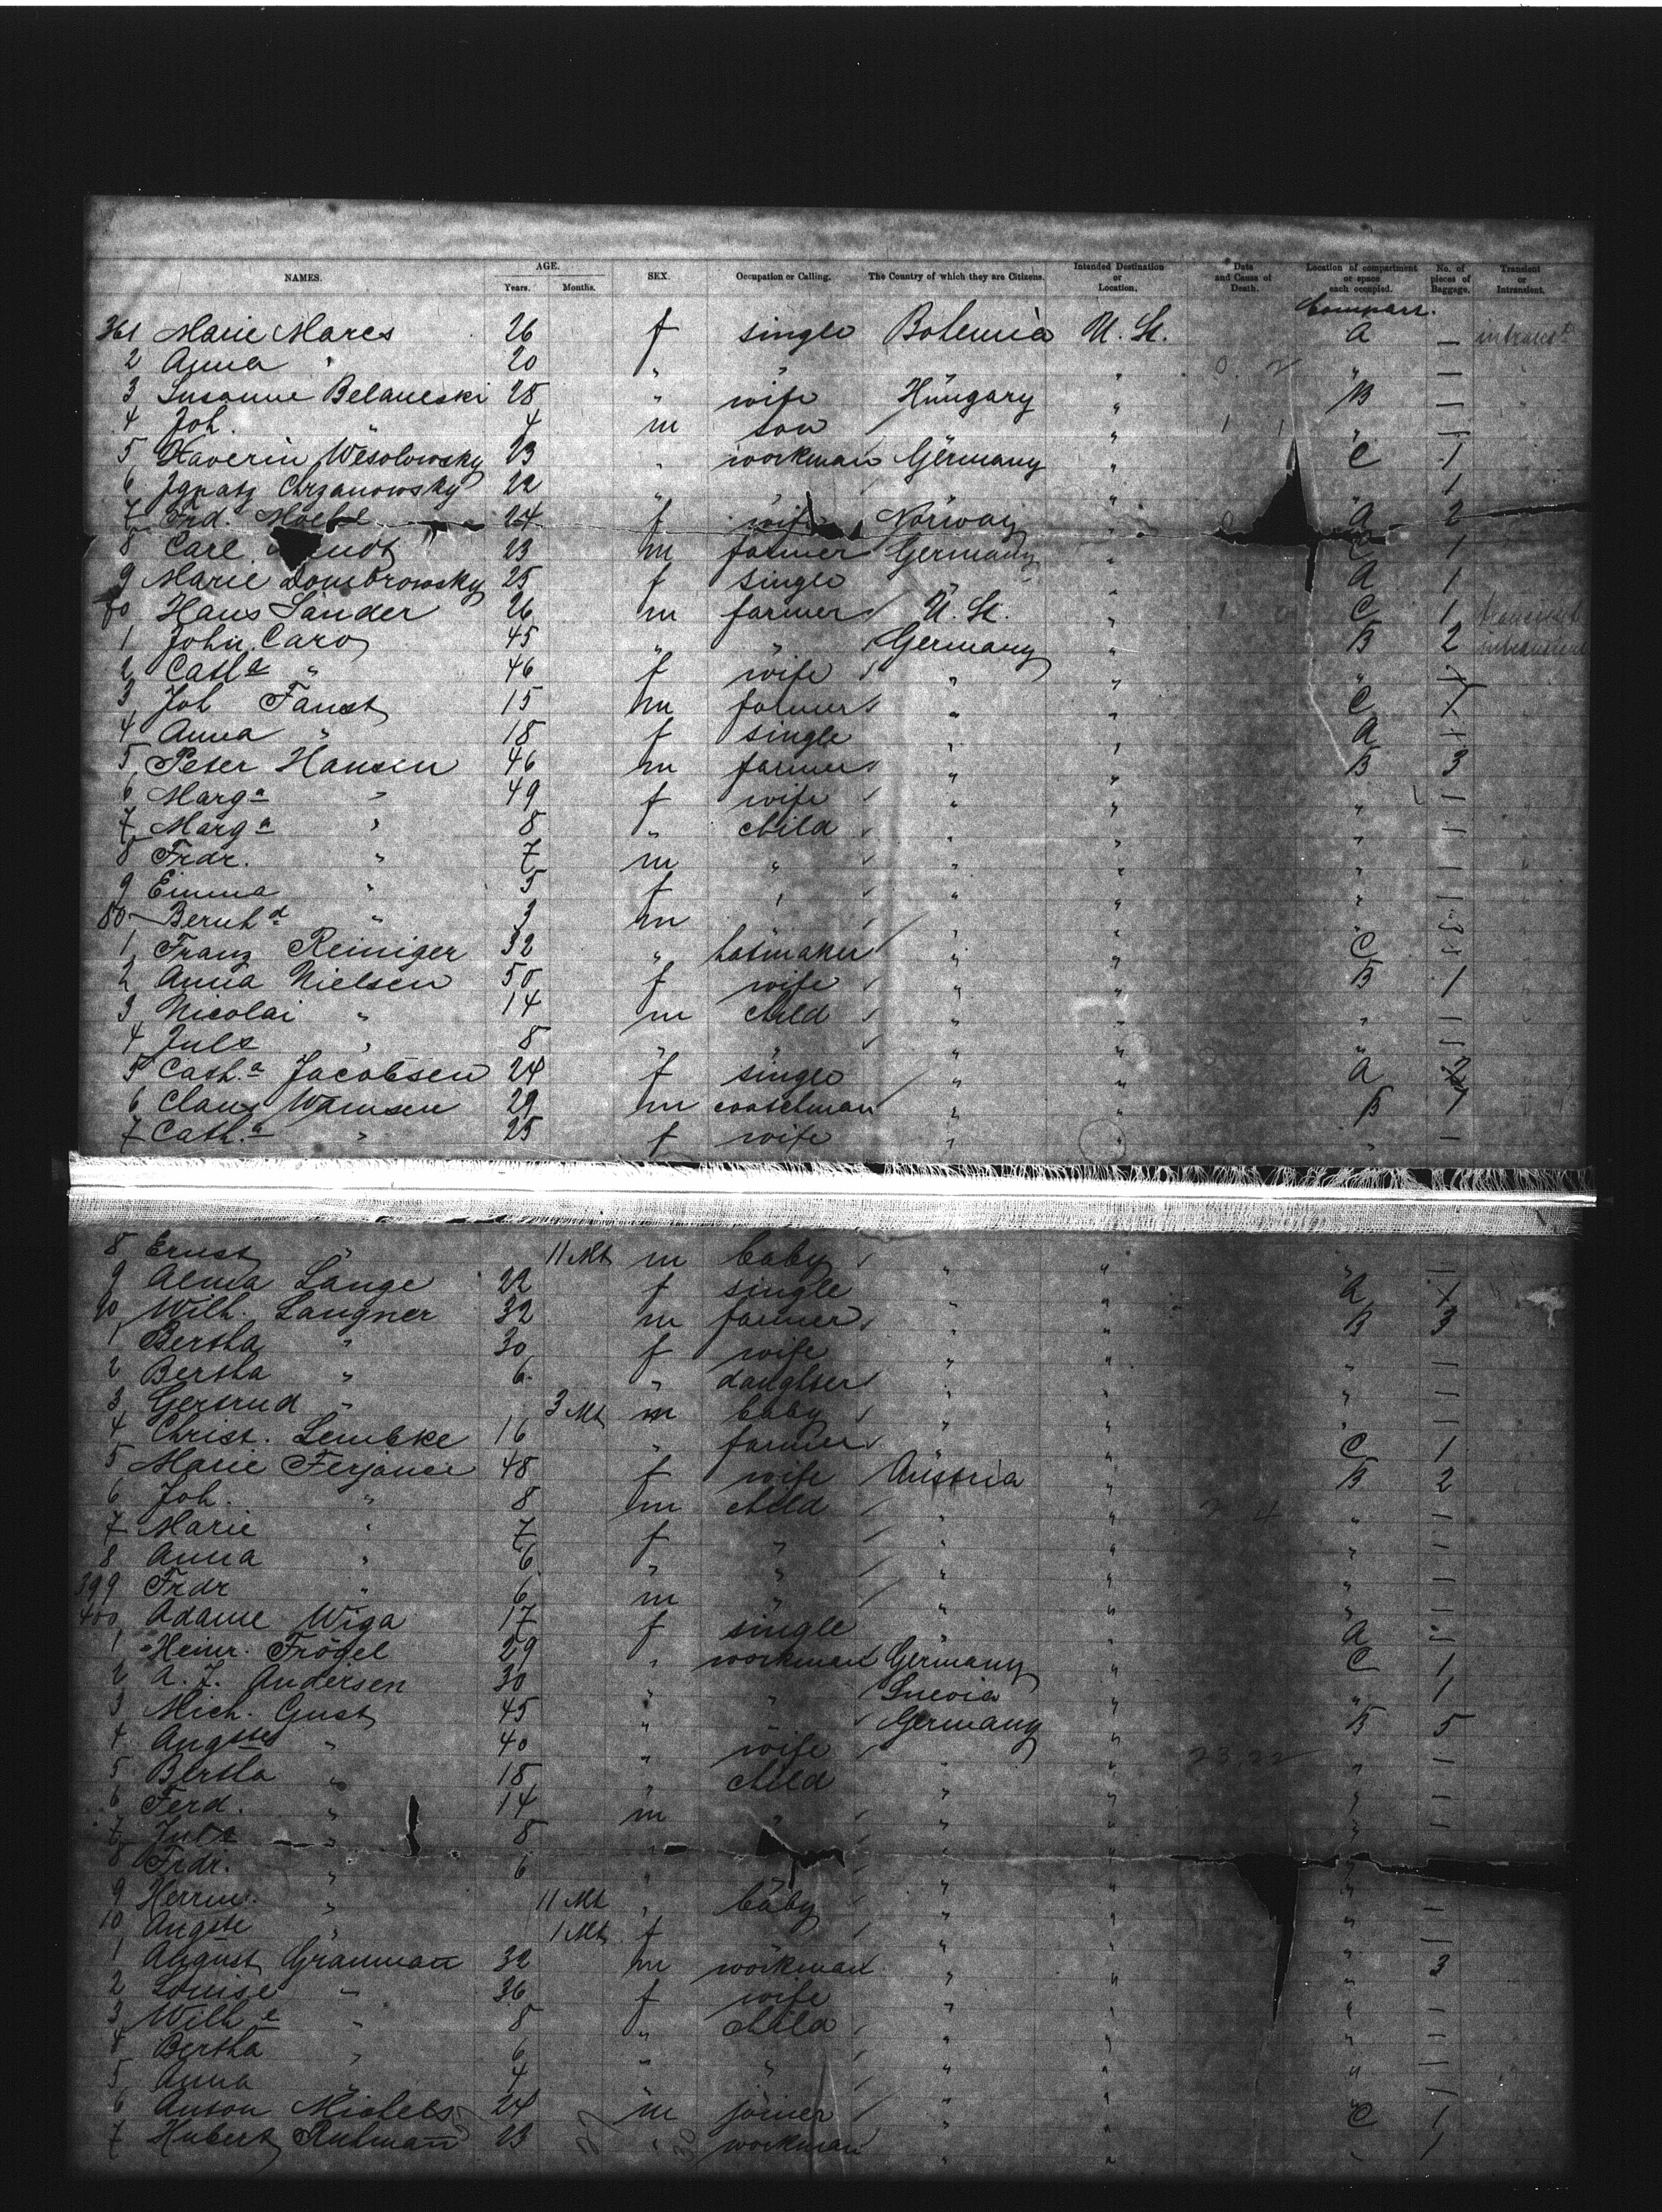 NAMES. AGE. Years. Months. SEX. Occupation or Calling. The Country of which they are Citizens. Intended Destination or Location. Date and Cause of Death. Location of compartment or space each occupied. No. of pieces of Baggage. Transient or Intransient.
Compart.
361 Marie Mares 26 f single Bohemia U. St. A —
2 Anna " 20 " " " " —
3 Susanne Belaneski 28 " wife Hungary " B —
4 Joh. " 4 m son " " —
5 Xaverin Wesolowsky 23 " workman Germany " C 1
6 Ignatz Chrzanowsky 22 " " " " 1
7 Frd. 24 f wife Norway A 2
8 Carl 23 m farmer Germany " C 1
9 Marie Dombrowsky 25 f single " " A 1
70 Hans Sander 26 m farmer U. St. " C 1
1 John Caro 45 " " Germany " B 2
2 Cath a " 46 f wife " " " —
3 Joh Faust 15 m farmer " " C
4 Anna " 18 f single " " A
5 Peter Hansen 46 m farmer " " B 3
6 Marg a " 49 f wife " " " —
7 Marg a " 8 " child " " " —
8 Frdr. " 7 m " " " " —
9 Emma " 5 f " " " " —
80 Bernh d " 3 m " " "
1 Franz Reiniger 32 " hatmaker " " C
2 Anna Nielsen 50 f wife " " B 1
3 Nicolai " 14 m child " " " —
4 Juls " 8 " " " " " —
5 Cath. a Jacobsen 24 f single " " A
6 Claus Wamsen 29 m coatchman " " B 1
7 Cath. a " 25 f wife " " " —
8 Ernst " 11 Mt m baby " " " —
9 Alma Lange 22 f single " " A
90 Wilh. Langner 32 m farmer " " B 3
1 Bertha " 30 f wife " " " —
2 Bertha " 6 " daughter " " " —
3 Gertrud " 3 Mt m baby " " " —
4 Christ. Lembke 16 " farmer " " C 1
5 Marie Ferjancic 48 f wife Austria " B 2
6 Joh. " 8 m child " " " —
7 Marie " 7 f " " " " —
8 Anna " 6 " " " " " —
399 Frdr " 6 m " " " " —
400 Adame Wiga 17 f single " " A —
1 Heinr. Frögel 29 " workman Germany " C 1
2 A. J. Andersen 30 " " Suecia " " 1
3 Mich. Gust 45 " Germany " B 5
4 Augste " 40 " wife " " " —
5 Bertha " 18 " child " " " —
6 Ferd. " 14 m " " " " —
7 Juls " 8 " " "
8 Frdr. " 6 " " " "
9 Herrm. " 11 Mt " baby " " " —
10 Augste " 1 Mt f " " " —
1 August Gramman 32 m workman " " " 3
2 Louise " 36 f wife " " " —
3 Wilh e " 8 " child " " " —
4 Bertha " 6 " " " " " —
5 Anna " 4 " " " —
6 Anton Michels 24 m joiner " " C 1
7 Hubert Ruhmann 23 " workman " " " 1